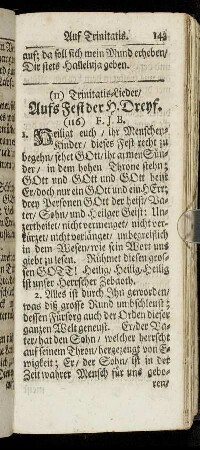 Auf Trinitatis. 143
auf; da soll sich mein Mund erheben/
Dir stets Halleluja geben.
(11) Trinitatis-Lieder/
Aufs Fest der H. Dreyf.
(116) F. J. B.
1. Heiligt euch/ ihr Menschen-
Kinder/ dieses Fest recht zu
begehn/ sehet GOtt/ ihr armen Sün-
der/ in dem hohen Throne stehn;
GOtt und GOtt und GOtt heist
Er/ doch nur ein GOtt und ein HErr;
drey Personen GOtt der heist/ Va-
ter/ Sohn/ und Heilger Geist: Un-
zertheilet/ nicht vermenget/ nicht ver-
kürzet/ nicht verlänget/ unbegreiflich
in dem Wesen/ wie sein Wort uns
giebt zu lesen. Rühmet diesen gros-
sen GOTT! Heilig/ Heilig/ Heilig
ist unser Herrscher Zebaoth.
2. Alles ist durch Ihn geworden/
was diß grosse Rund umschleust;
dessen Fürsorg auch der Orden dieser
ganzen Welt geneust. Er/ der Va-
ter/ hat den Sohn/ welcher herrscht
auf seinem Thron/ hergezeugt von E-
wigkeit; Er/ der Sohn/ ist in der
Zeit wahrer Mensch für uns gebo-
ren/